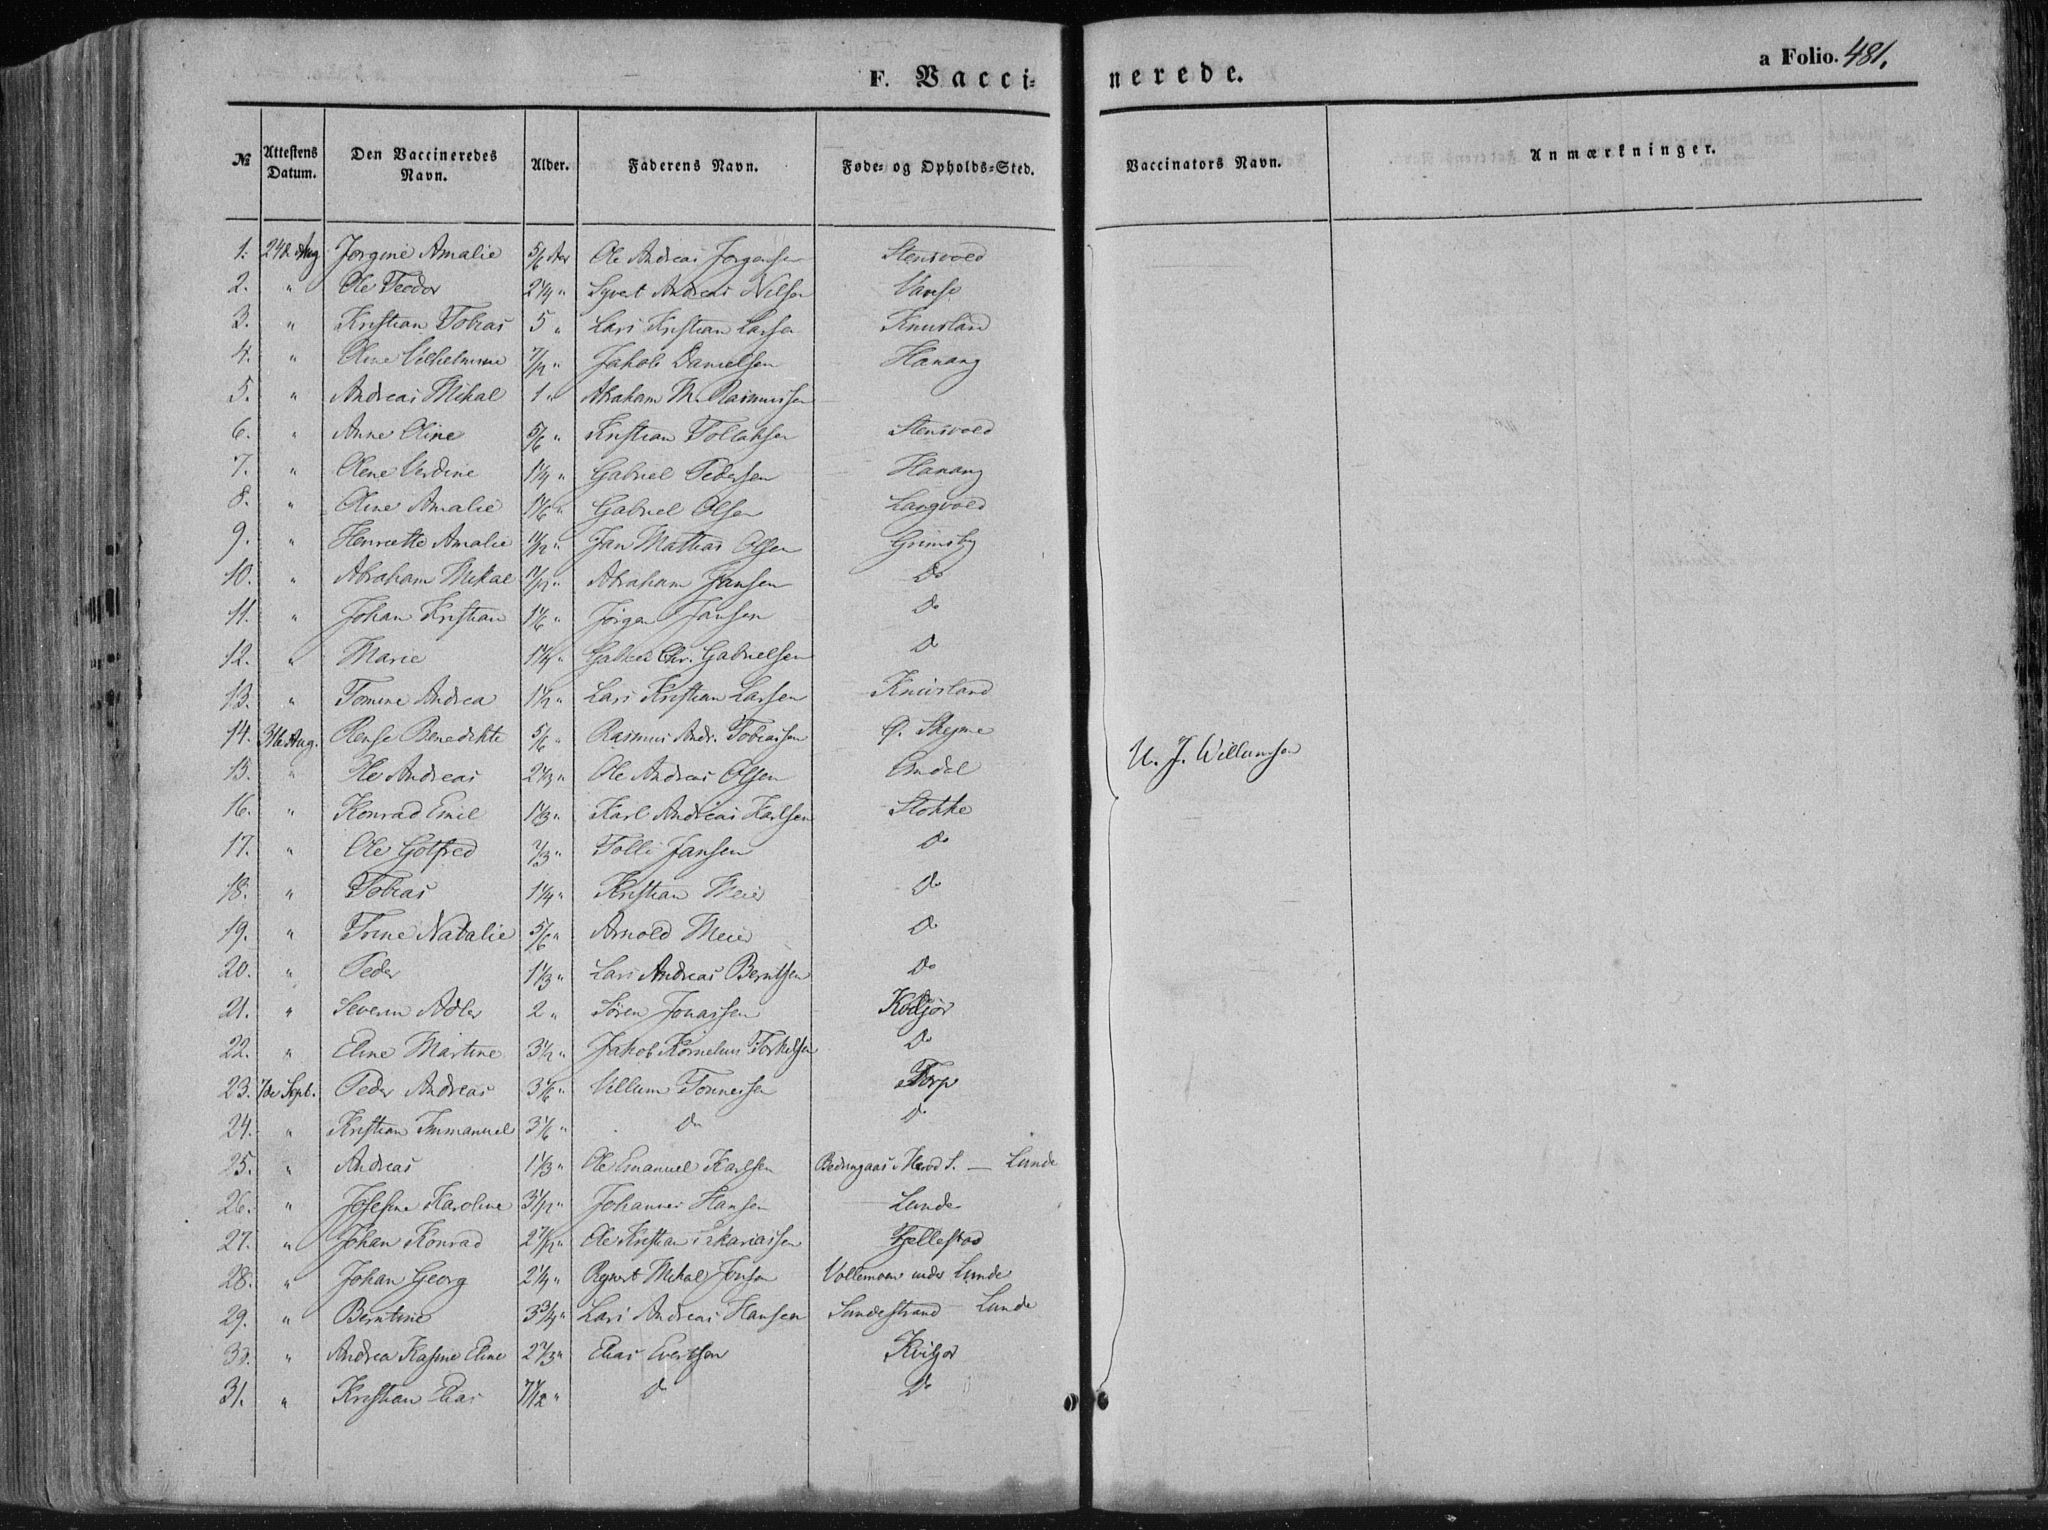 F. Vacci-nerede.
a Folio. 481.
№ Attestens Datum. Den Vaccineredes Navn. Alder. Faderens Navn. Føde- og Opholds-Sted. Vaccinators Navn. Anmærkninger.
1. 24d Aug Jørgine Amalie 5/6 Aar Ole Andreas Jørgensen Stensvold
2. " Ole Teodor 2 1/4 " Syvert Andreas Nilsen Vanse
3. " Kristian Tobias 5 " Lars Kristian Larsen Knivsland
4. " Oline Vilhelmine Jakob Danielsen Hanang
5. " Andreas Mikal 1 " Abraham M. Rasmussen
6. " Anne Oline 5/6 " Kristian Tollaksen Stensvold
7. " Olene Verdine 1 1/4 " Gabriel Pedersen Hanang
8. " Oline Amalie 1 1/6 " Gabriel Olsen Langvold
9. " Henriette Amalie Jan Mathias Olsen Grimsby
10. " Abraham Mikal 7/12 " Abraham Jansen Do
11. " Johan Kristian 1 1/6 " Jørgen Jansen Do
12. " Marie 1 1/4 " Gabriel Chr. Gabrielsen Do
13. " Tomine Andrea 1 1/2 " Lars Kristian Larsen Knivsland
14. 31te Aug. Benedikte 5/6 " Rasmus Andr. Tobiassen Ø. Skeime
15. " Ole Andreas 2 1/3 " Ole Andreas Olsen
16. " Konrad Emil 1 1/3 " Karl Andreas Karlsen Stokke
17. " Ole Gotfred 2/3 " Tolli Jansen Do
18. " Tobias 1 1/4 " Kristian Meier Do
19. " Trine Natalie 5/6 " Arnold Meier Do
20. " Peder 1 1/3 " Lars Andreas Berntsen Do
21. " Severin Adler 2 " Sören Jonassen Kviljor
22. " Eline Martine 3 1/2 " Jakob Kornelius Torkilsen Do
23. 7de Sept. Peder Andreas 3 1/6 " Villum Tønnessen Torp
24. " Kristian Immanuel 3 1/6 " Do Do
25. " Andreas 1 1/3 " Ole Emanuel Karlsen Lunde
26. " Josefine Karoline 3 1/2 " Johannes Hansen Lunde
27. " Johan Konrad Ole Kristian Sakariassen Fjellestad
28. " Johan Georg 2 1/4 " Mikal Jonsen Vollemoen under Lunde
29. " Berntine 3 3/4 " Lars Andreas Hansen Lundestrand Lunde
30. " Andrea Kasine Eline 2 2/3 " Elias Evertsen Kviljor
31. " Kristian Elias 7 1/2 " Do Do
U. J. Willumsen